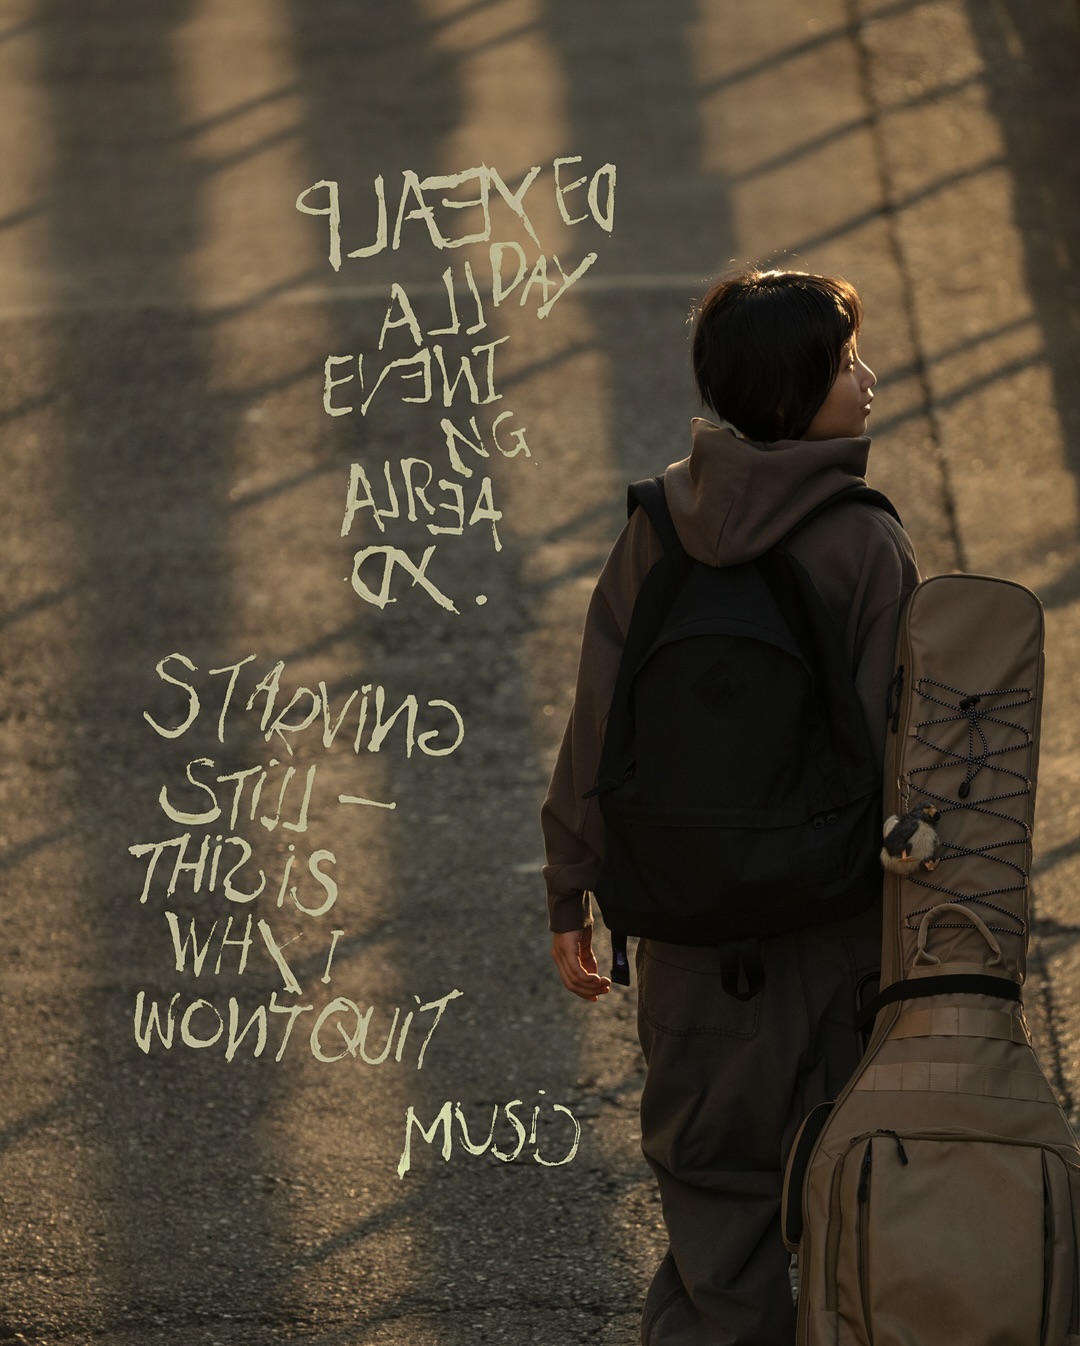 PLAEYED
ALL DAY
EVENI
NG
ALREA
DY.
STARVING
STILL —
THIS IS
WHY I
WONT QUIT
MUSIC